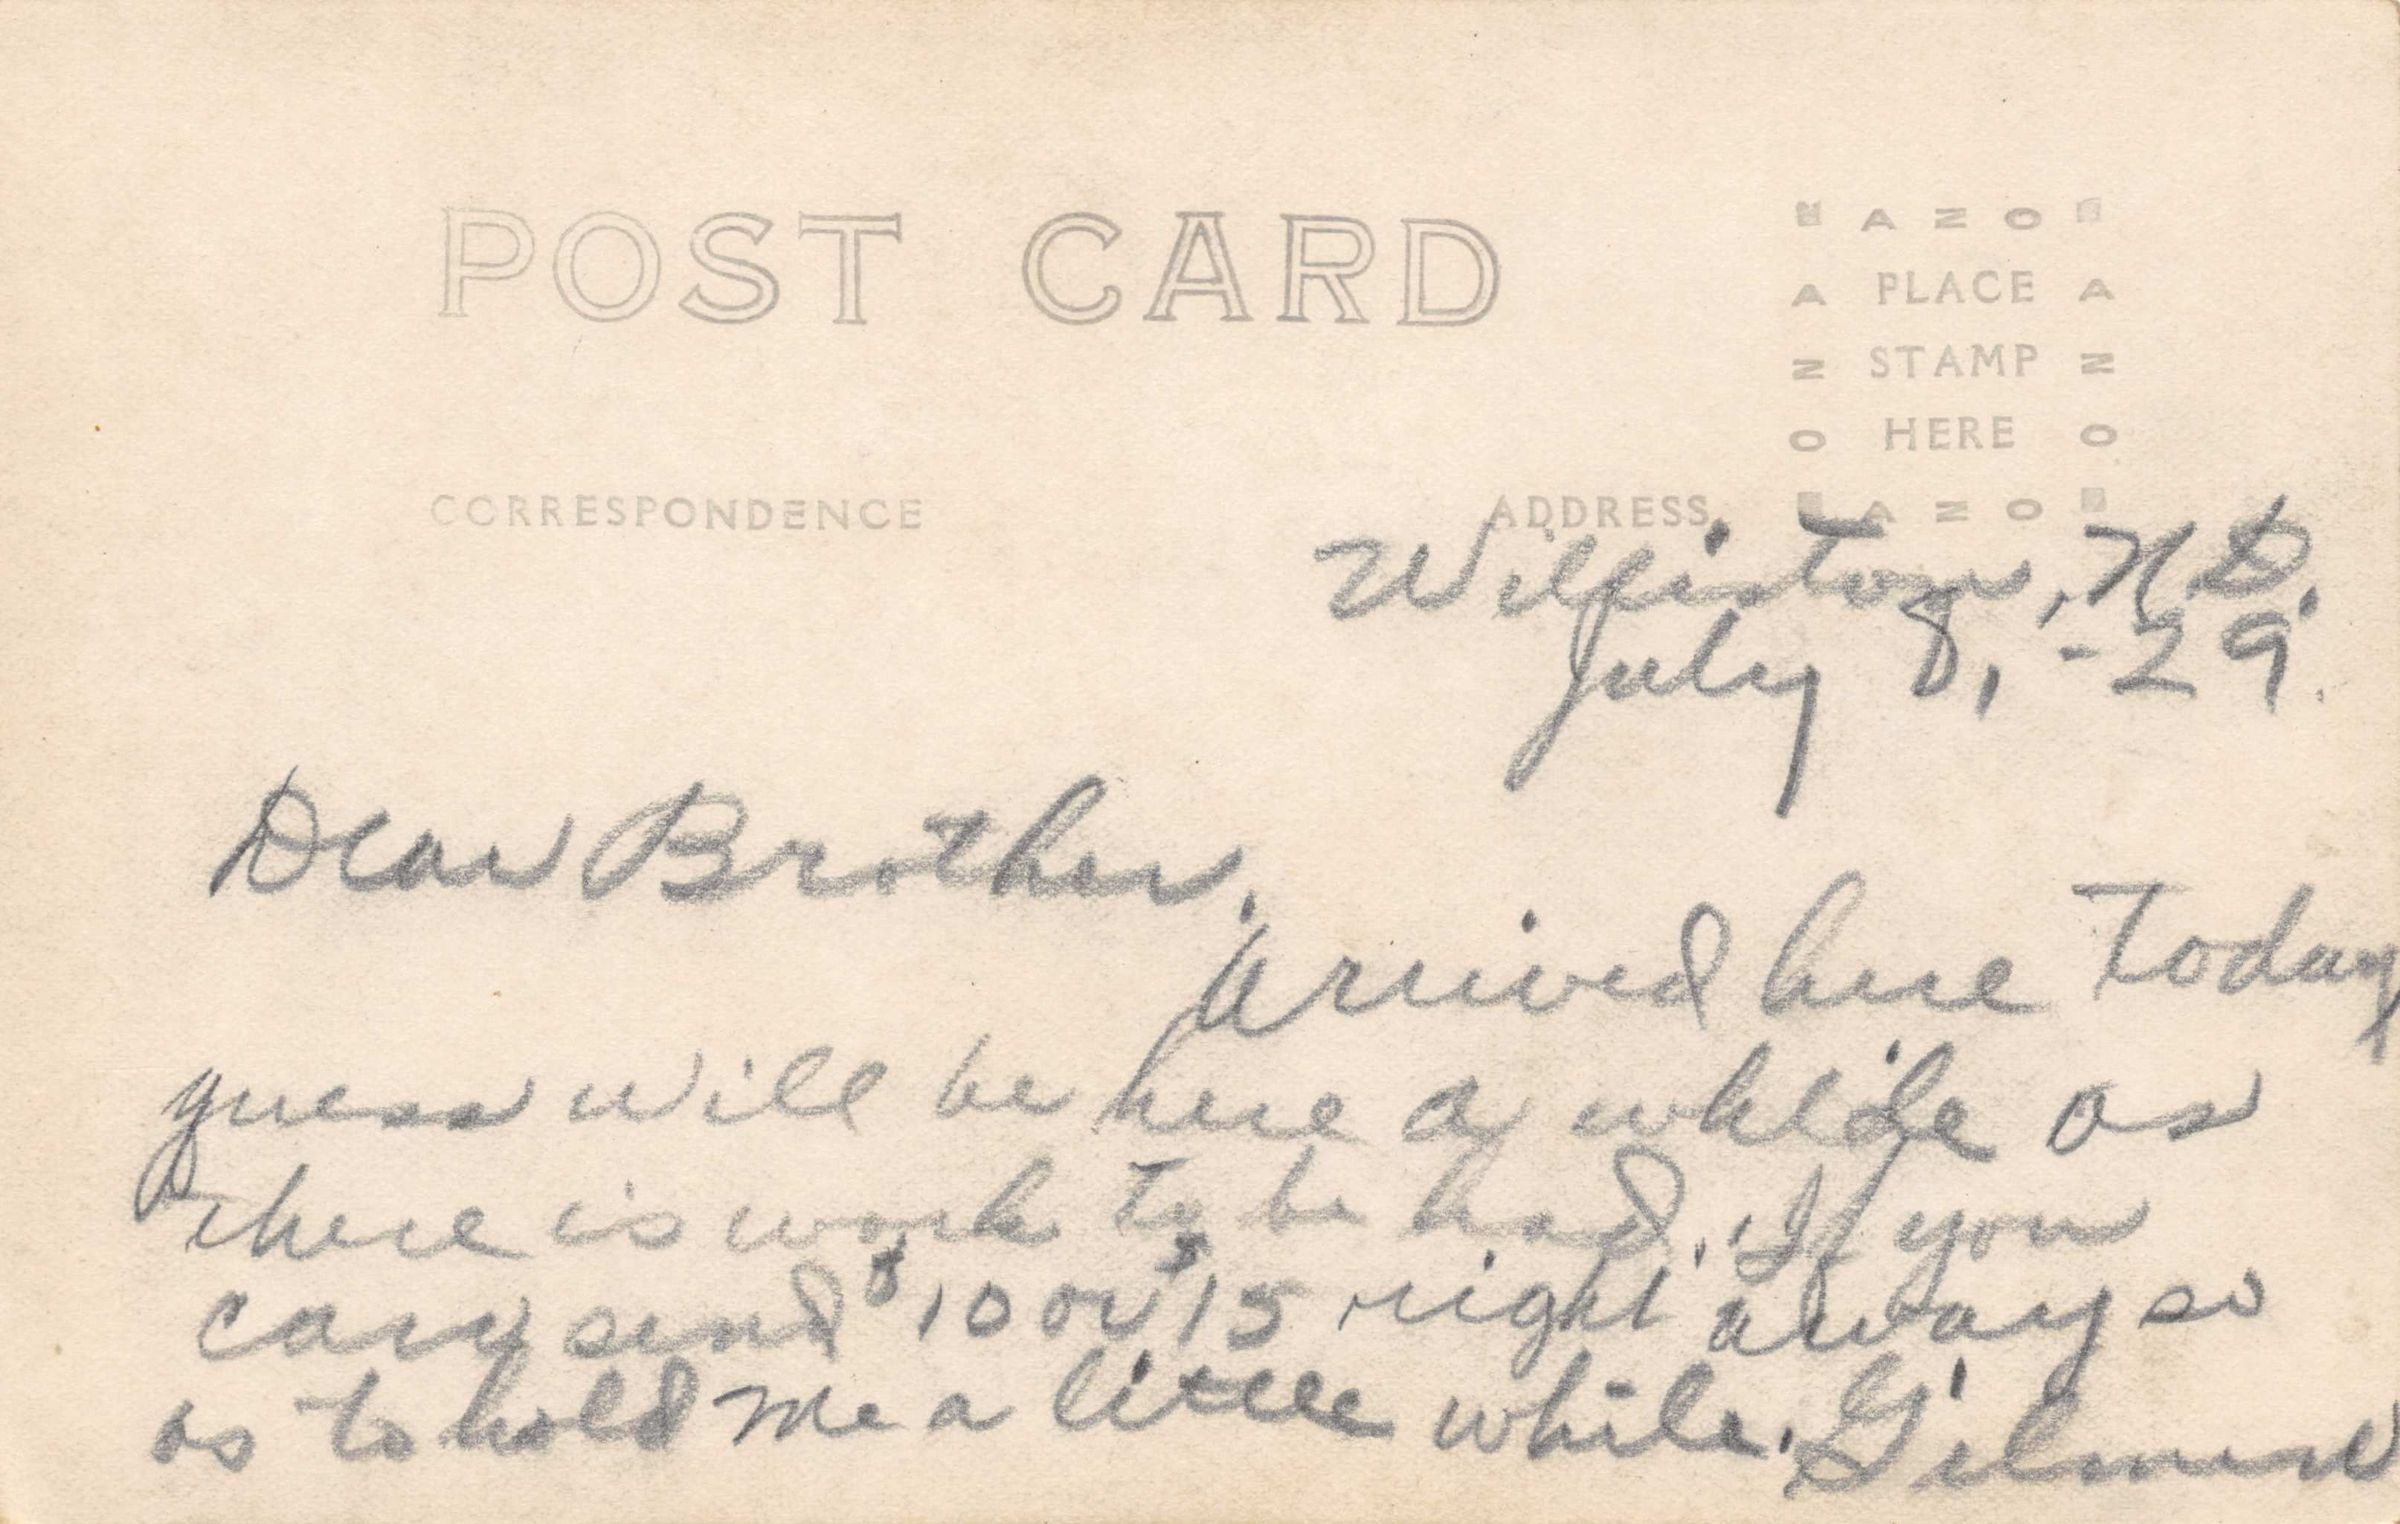 POST CARD
AZO
PLACE
STAMP
HERE
AZO
CORRESPONDENCE
ADDRESS
Williston, N.D.
July 8, -29.
Dear Brother,
Arrived here today
guess will be here a while as
there is work to be had. If you
can send $10 or $15 right away so
as to hold me a little while.